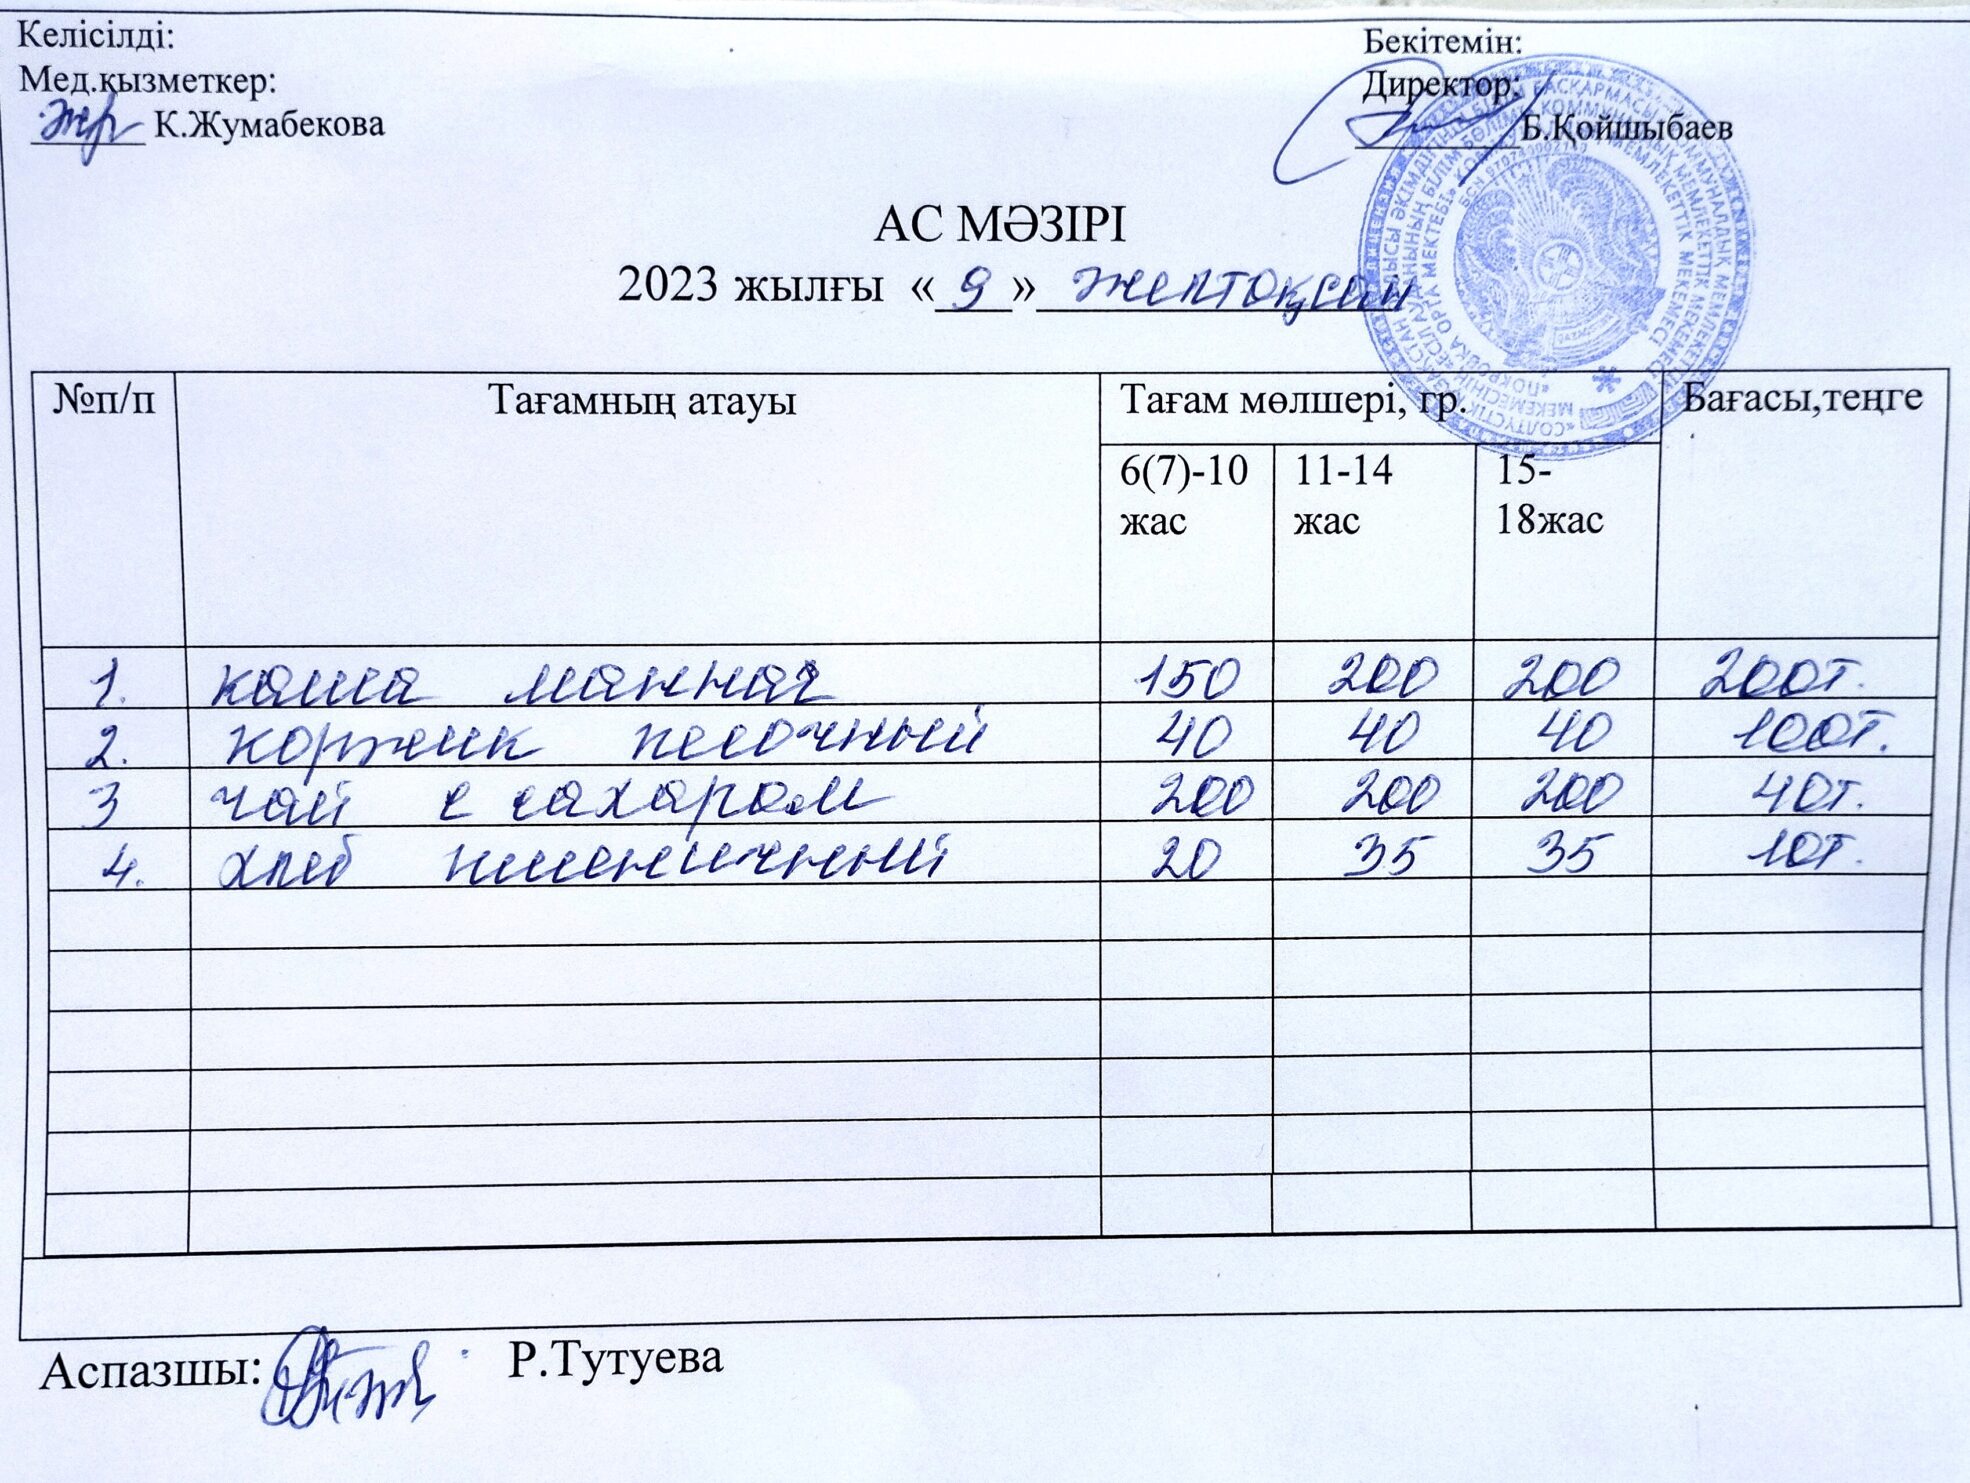 Келісілді:
Мед.қызметкер:
К.Жумабекова
Бекітемін:
Директор:
Б.Қойшыбаев
АС МӘЗІРІ
2023 жылғы « 9 » желтоқсан
№п/п Тағамның атауы Тағам мөлшері, гр. Бағасы,теңге
6(7)-10 жас 11-14 жас 15-18жас
1. каша манная 150 200 200 200т.
2. коржик песочный 40 40 40 100т.
3 чай с сахаром 200 200 200 40т.
4. хлеб пшеничный 20 35 35 10т.
Аспазшы: Р.Тутуева